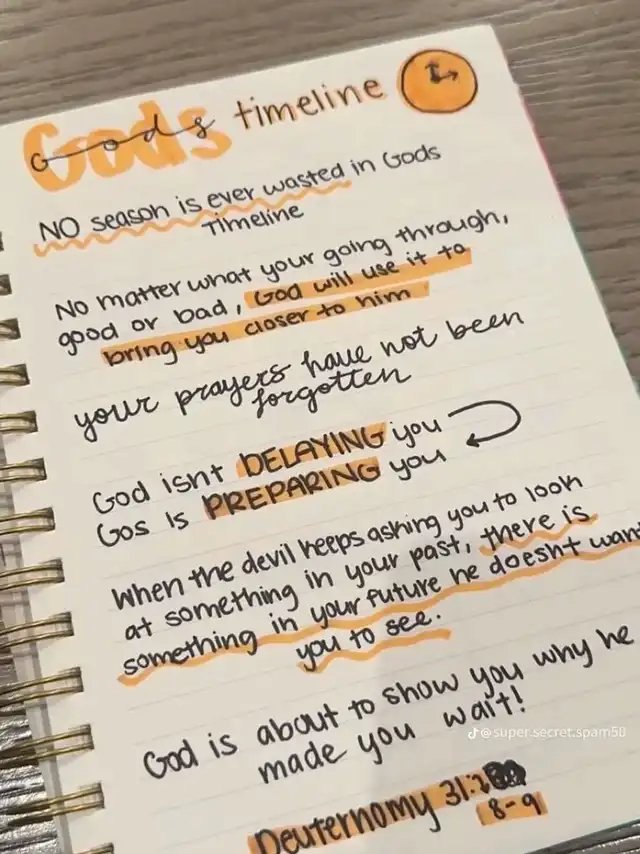 Gods timeline
NO season is ever wasted in Gods
Timeline
No matter what your going through,
good or bad, God will use it to
bring you closer to him
your prayers have not been
forgotten
God isnt DELAYING you
Gos is PREPARING you
When the devil keeps asking you to look
at something in your past, there is
something in your future he doesnt want
you to see.
God is about to show you why he
made you wait!
@super.secret.spam50
Deuternomy 31:
8-9